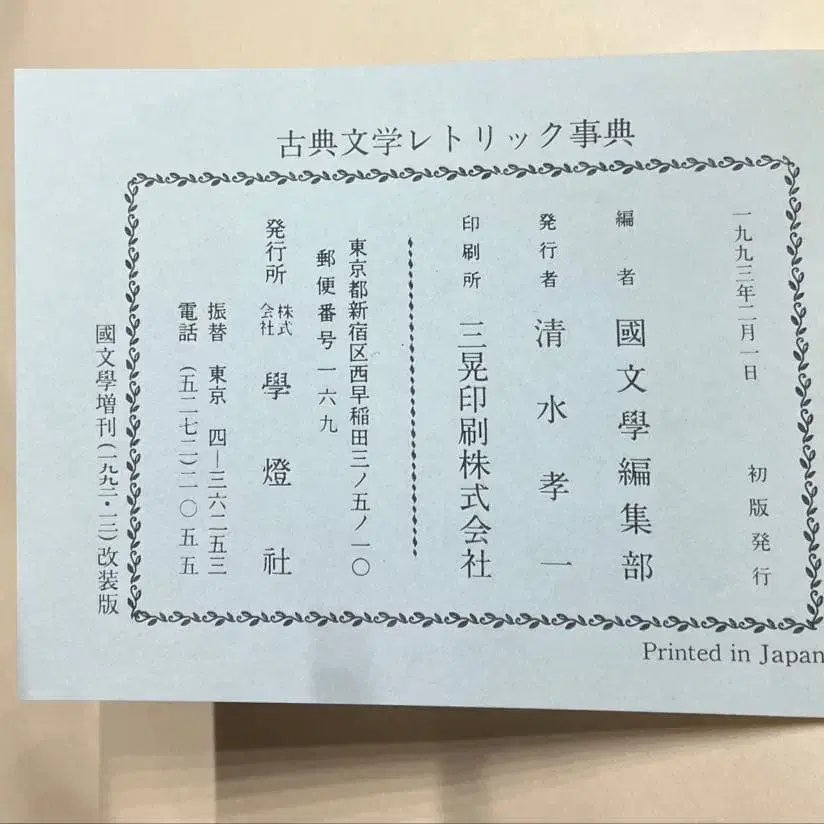 古典文学レトリック事典
一九九三年二月一日 初版発行
編者 國文學編集部
発行者 清水孝一
印刷所 三晃印刷株式会社
東京都新宿区西早稲田三ノ五ノ一〇
郵便番号一六九
発行所 株式会社 學燈社
振替 東京 四―三六二五三
電話 (五二七二)二〇五五
國文學増刊(一九九二・一二)改装版
Printed in Japan